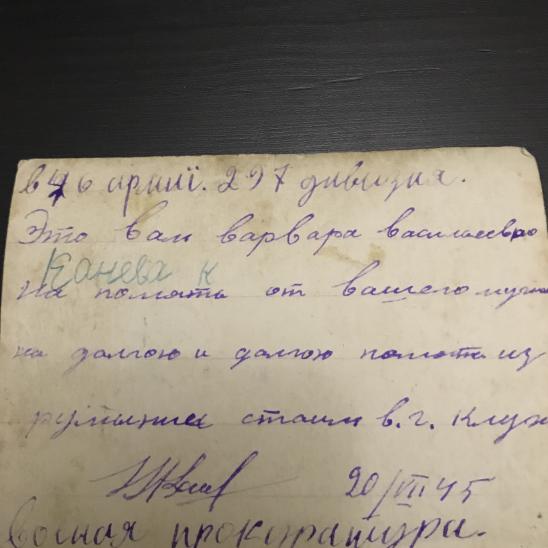 в 46 армиї. 297 дивизия.
Это вам варвара василевно
Канева к
на помять от вашего мужа
на долгою и долгою помять из
румынии стоим в.г. Клуж
20/VII 45
воєная прокуратура.